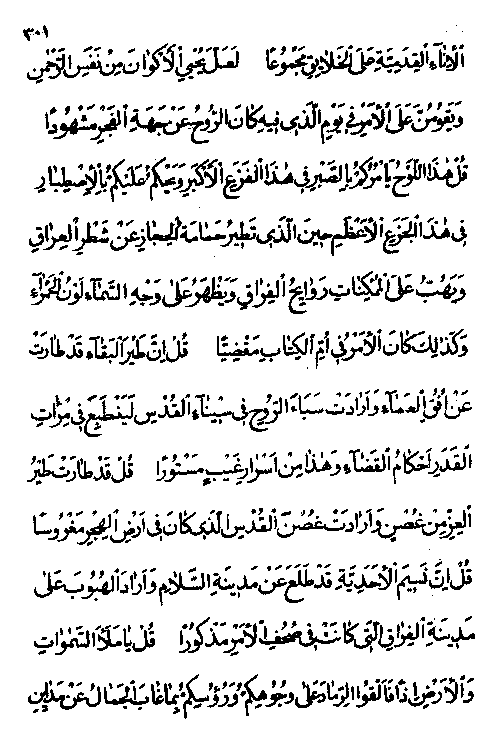 ٣٠١
الأنباء القدميّة على الخلايق مجموعًا لعلّ يحيي الأكوان من نفس الرّحمن
ويقومنّ على الأمر في يوم الّذي فيه كان الرّوح عن جهة الفجر مشهودًا
قل هذا اللّوح يأمركم بالصّبر في هذا الفزع الأكبر ويحكم عليكم بالإصطبار
في هذا الجزع الأعظم حين الّذي تطير حمامة الحجاز عن شطر العراق
ويهبّ على الممكنات روايح الفراق ويظهر على وجه السّماء لون الحمراء
وكذلك كان الأمر في أمّ الكتاب مقضيًّا قل إنّ طير البقاء قد طارت
عن أفق العماء وأرادت سباء الرّوح في سيناء القدس لينطبع في مرات
القدر أحكام القضاء وهذا من أسرار غيب مستورًا قل قد طارت طير
العزّ من غصن وأرادت غصن القدس الّذي كان في أرض الهجر مغروسا
قل إنّ نسيم الأحديّة قد طلع عن مدينة السّلام وأراد الهبوب على
مدينة الفراق الّتي كانت في صحف الأمر مذكورًا قل يا ملأ السّموات
والأرض إذًا فألقوا الرّماد على وجوهكم ورؤسكم بما غاب الجمال عن مداين